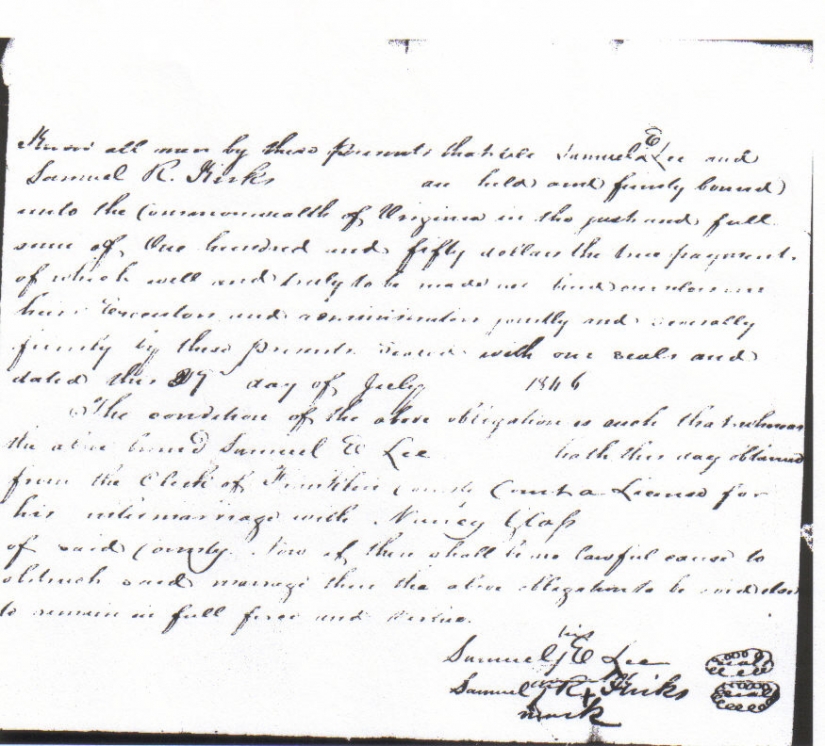 Know all men by these presents that we Samuel E Lee and
Samuel R. Kirks are held and firmly bound
unto the Commonwealth of Virginia in the just and full
sum of One hundred and fifty dollars the true payment
of which well and truly to be made we bind ourselves our
heirs Executors and administrators jointly and severally
firmly by these presents sealed with our seals and
dated this 27 day of July 1846
The condition of the above obligation is such that whereas
the above bound Samuel E Lee hath this day obtained
from the Clerk of Franklin County Court a License for
his intermarriage with Nancy Glass
of said County. Now if there shall be no lawful cause to
obstruct said marriage then the above obligation to be void else
to remain in full force and virtue.
Samuel E Lee seal
his
Samuel R X Kirks seal
mark